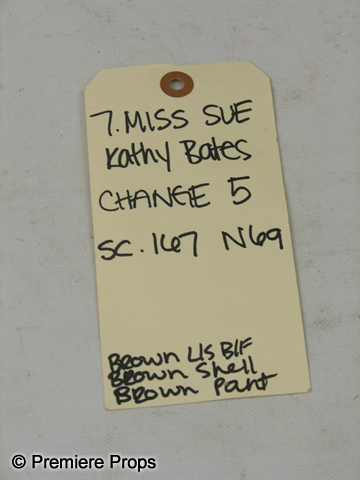 7. MISS SUE
Kathy Bates
CHANGE 5
SC. 167 N69
BROWN L/S B/F
BROWN Shell
BROWN Pant
© Premiere Props